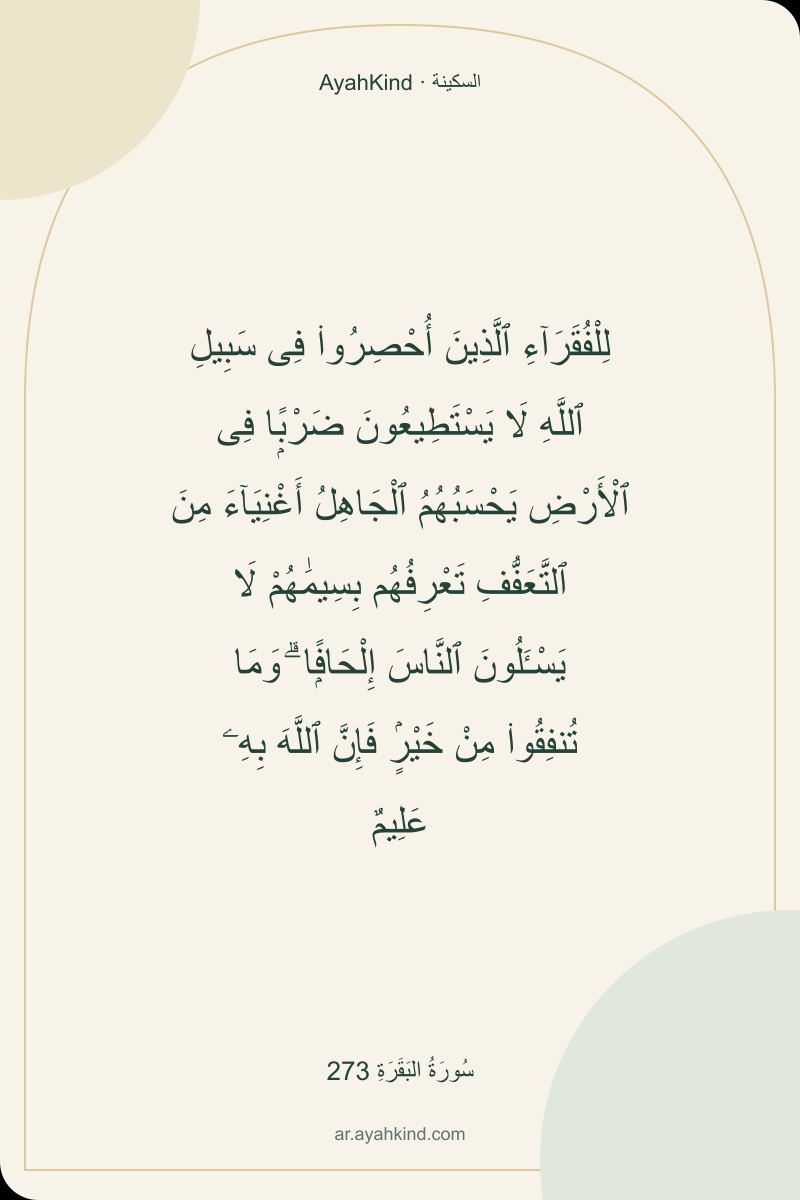 AyahKind · السكينة
لِلْفُقَرَآءِ ٱلَّذِينَ أُحْصِرُوا۟ فِى سَبِيلِ
ٱللَّهِ لَا يَسْتَطِيعُونَ ضَرْبًۭا فِى
ٱلْأَرْضِ يَحْسَبُهُمُ ٱلْجَاهِلُ أَغْنِيَآءَ مِنَ
ٱلتَّعَفُّفِ تَعْرِفُهُم بِسِيمَٰهُمْ لَا
يَسْـَٔلُونَ ٱلنَّاسَ إِلْحَافًۭا ۗ وَمَا
تُنفِقُوا۟ مِنْ خَيْرٍۢ فَإِنَّ ٱللَّهَ بِهِۦ
عَلِيمٌ
سُورَةُ البَقَرَةِ 273
ar.ayahkind.com